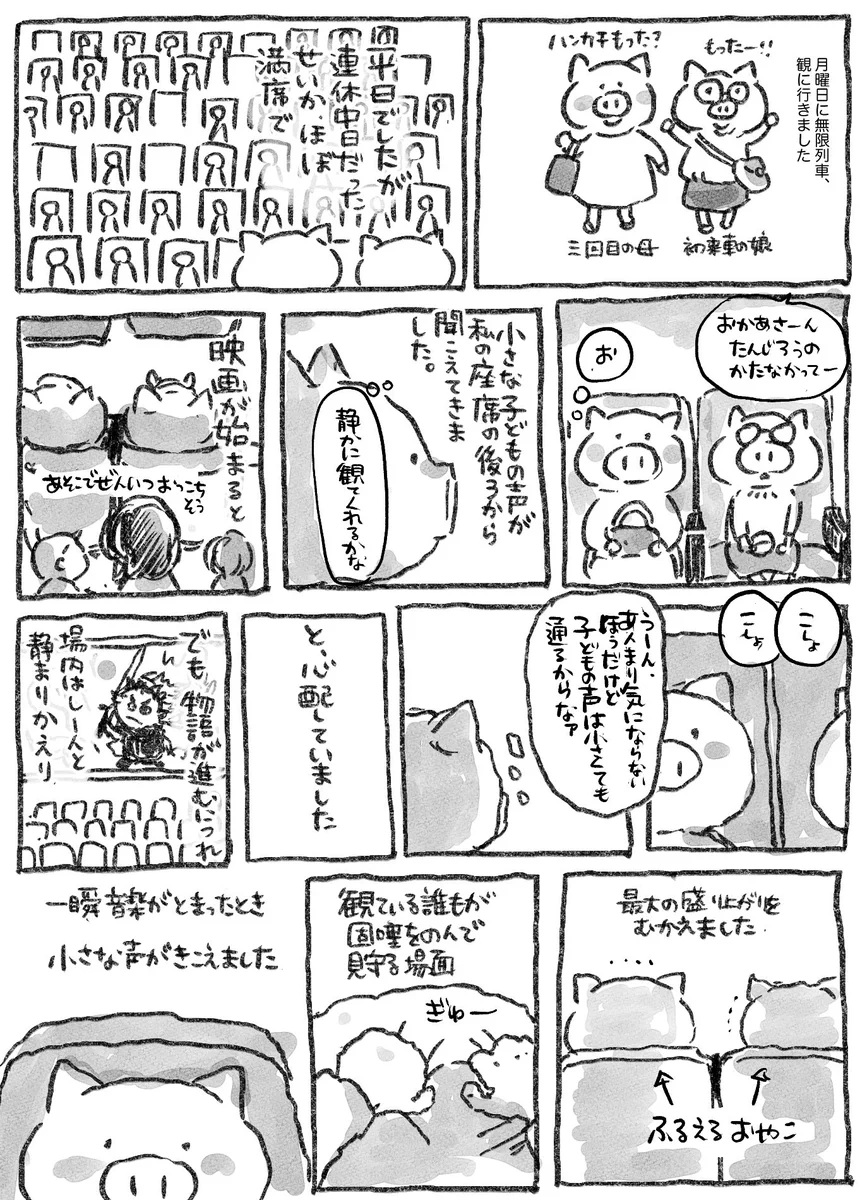 月曜日に無限列車、
観に行きました
ハンカチもった?
もったー!!
三回目の母
初乗車の娘
平日でしたが
連休中日だった
せいか、ほぼ
満席で
おかあさーん
たんじろうの
かたなかってー
お
小さな子どもの声が
私の座席の後ろから
聞こえてきま
した。
静かに観てくれるかな
映画が始まると
あそこでぜんいつおっこち
そう
こしょ
こしょ
うーん、
あんまり気にならない
ほうだけど
子どもの声は小さくても
通るからなァ
と、心配していました
でも、物語が進むにつれ
場内はしーんと
静まりかえり
最大の盛り上がりを
むかえました
‥‥
ふるえるおやこ
観ている誰もが
固唾をのんで
見守る場面
ぎゅー
一瞬音楽がとまったとき
小さな声がきこえました